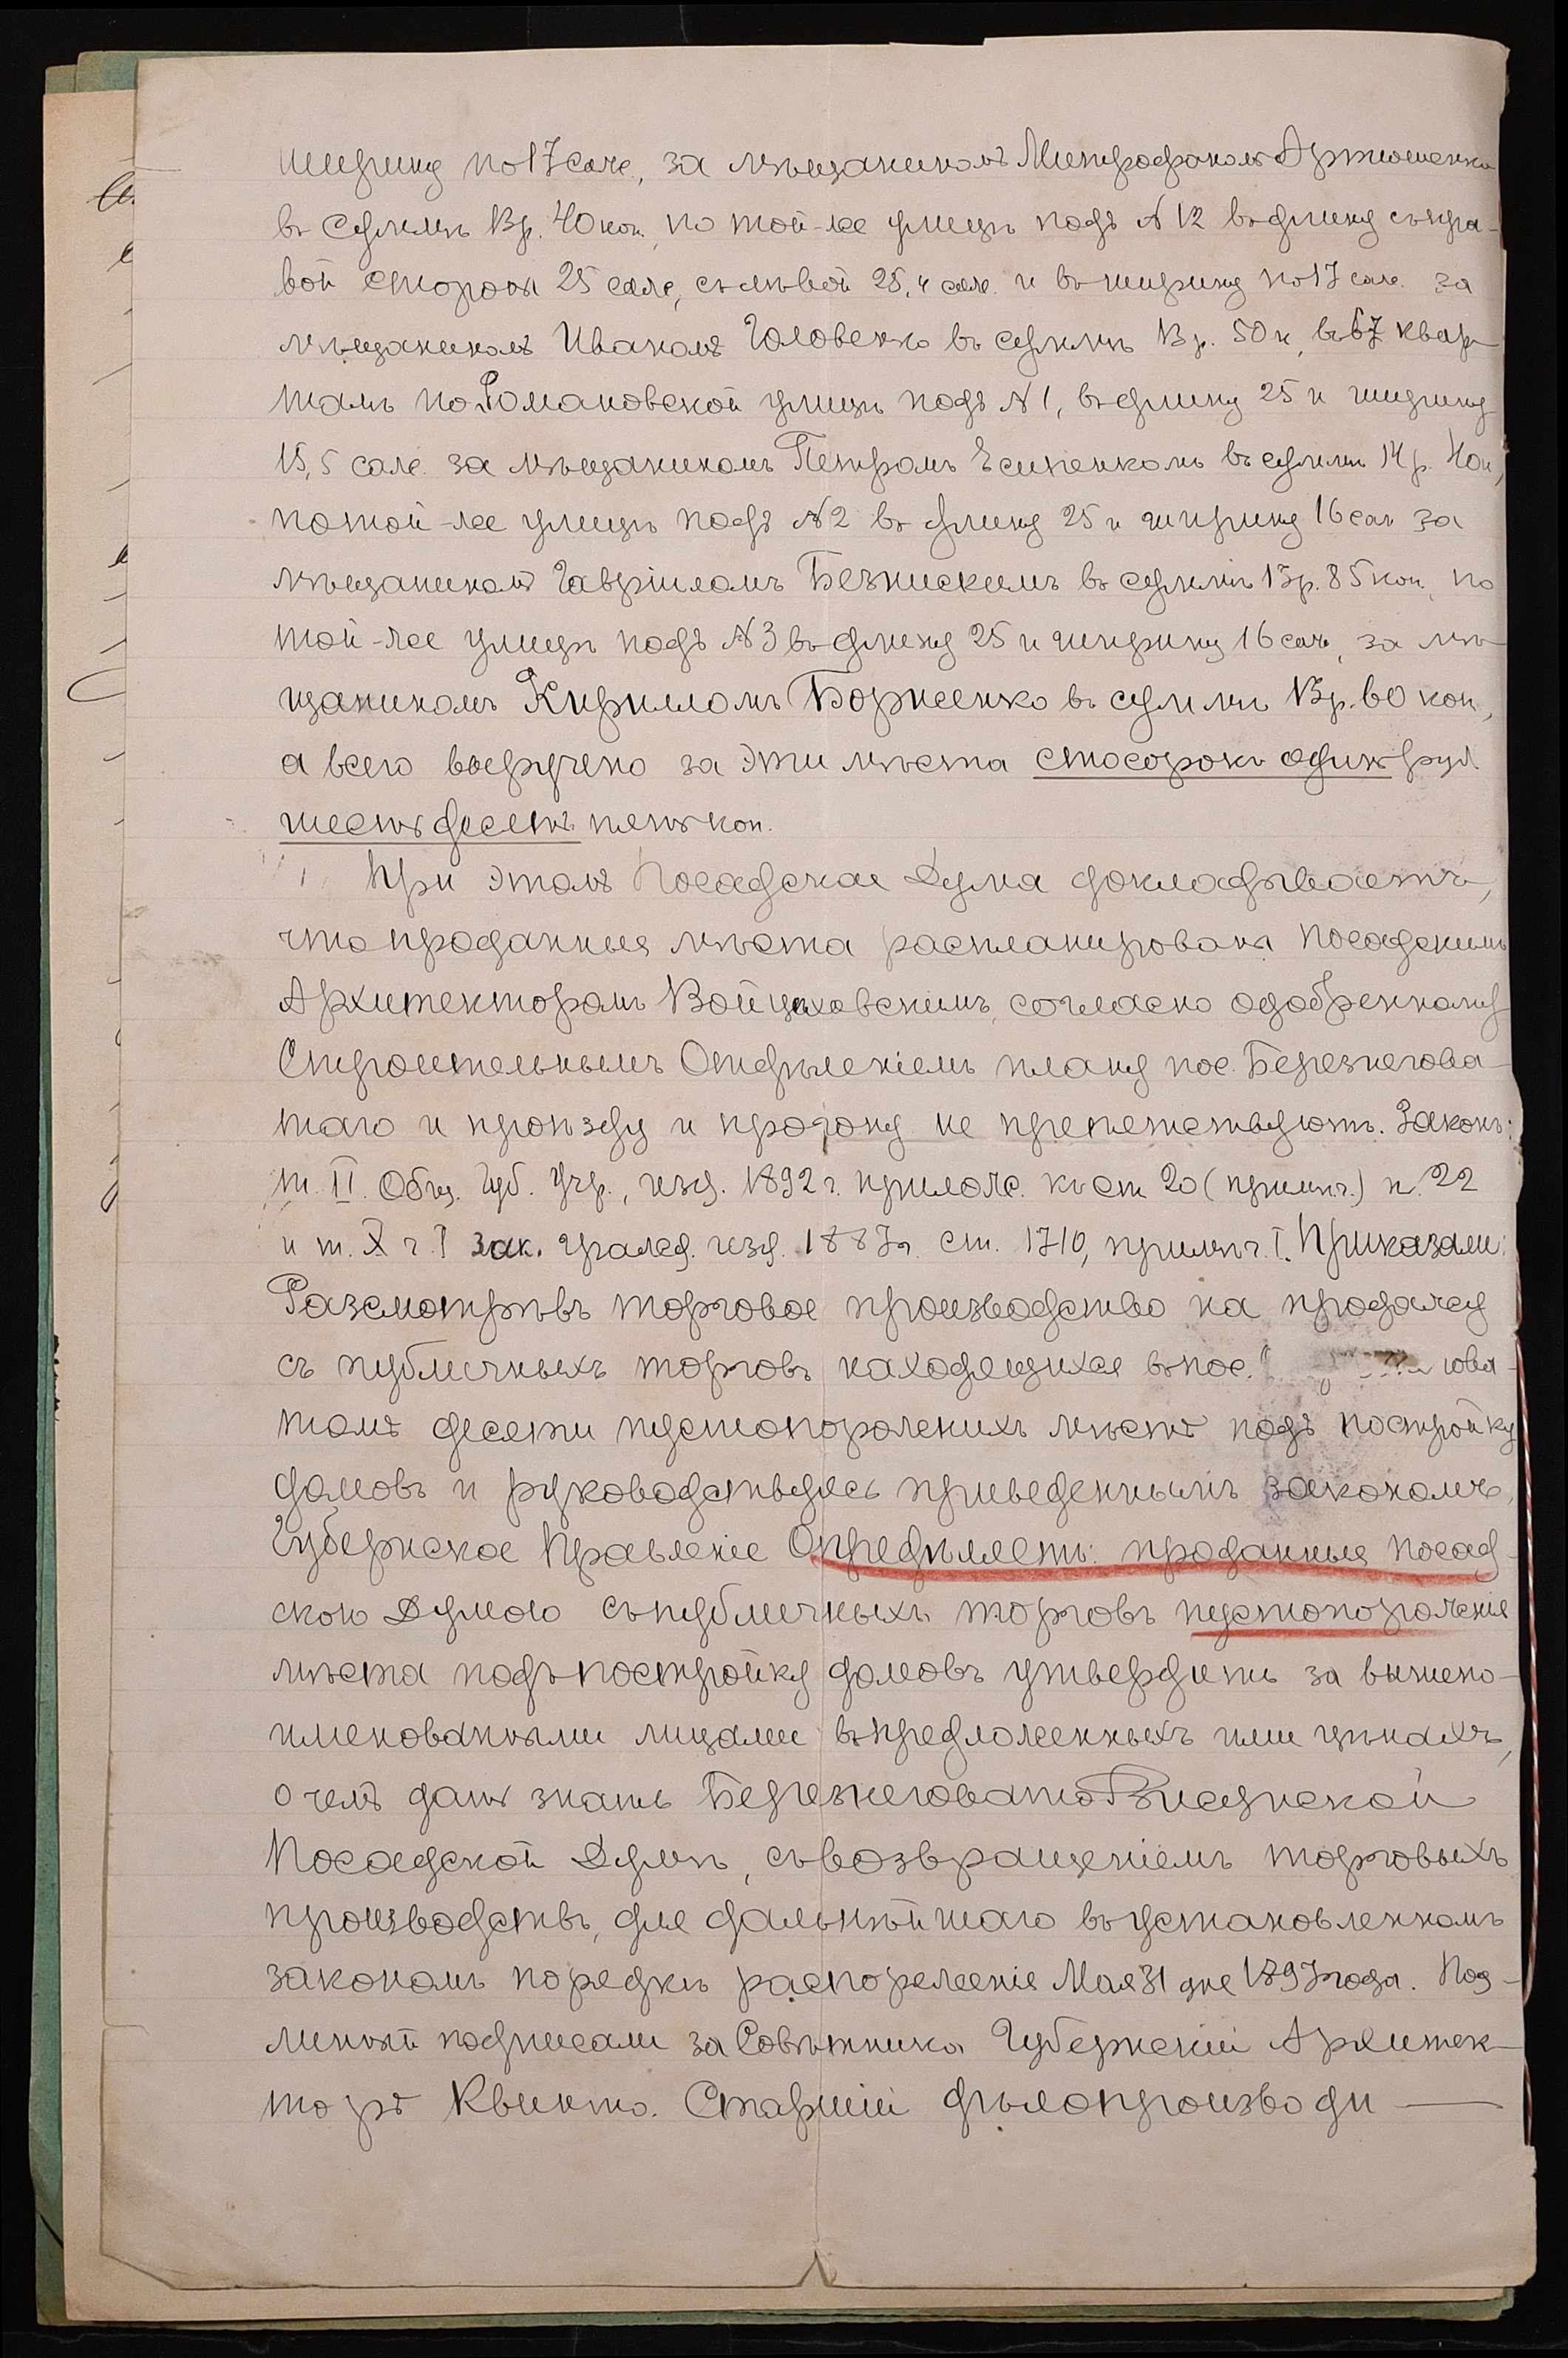 ширину по 17 саж., за мѣщаниномъ Митрофаномъ Артюшенко
въ суммѣ 13 р. 40 коп., по той-же улицѣ подъ № 12 въ длину съ пра-
вой стороны 25 саж., съ лѣвой 25,4 саж. и въ ширину по 17 саж. за
мѣщаниномъ Иваномъ Головенко въ суммѣ 13 р. 50 к., въ 67 квар-
талѣ по Романовской улицѣ подъ № 1, въ длину 25 и ширину
15,5 саж. за мѣщаниномъ Петромъ Есипенкомъ въ суммѣ 14 р. 40 к.,
по той-же улицѣ подъ № 2 въ длину 25 и ширину 16 саж за
мѣщаниномъ Гавріиломъ въ суммѣ 13 р. 85 коп., по
той-же улицѣ подъ № 3 въ длину 25 и ширину 16 саж., за мѣ-
щаниномъ Кирилломъ Борисенко въ суммѣ 13 р. 60 коп,
а всего выручено за эти мѣста сто сорокъ одинъ руб.
шестьдесятъ пять коп.
При этомъ Посадская Дума докладываетъ,
что проданныя мѣста распланированы Посадскимъ
Архитекторомъ Войцеховскимъ, согласно одобренному
Строительнымъ Отдѣленіемъ плану пос. Березнегова-
таго и проѣзду и прогону не препятствуютъ. Законъ:
т. II. Общ. Губ. Учр., изд. 1892 г. прилож. къ ст 20 (примѣч.) п. 22
и т. X ч. I Зак. Гражд. изд. 1887 г. ст. 1710, примѣч. I. Приказали:
Разсмотрѣвъ торговое производство на продажу
съ публичныхъ торговъ находящихся въ пос. гова-
томъ десяти пустопорожнихъ мѣстъ подъ постройку
домовъ и руководствуясь приведеннымъ закономъ,
Губернское Правленіе Опредѣляетъ: проданныя Посад-
скою Думою съ публичныхъ торговъ пустопорожнія
мѣста подъ постройку домовъ утвердить за вышепо-
именованными лицами въ предложенныхъ ими цѣнахъ,
о чемъ дать знать Березнеговато-Висунской
Посадской Думѣ, съ возвращеніемъ торговыхъ
производствъ, для дальнѣйшаго въ установленномъ
закономъ порядкѣ распоряженія Мая 31 дня 1897 года. Под-
линный подписали за Совѣтника Губернскій Архитек-
торъ Квинто. Старшій дѣлопроизводи-